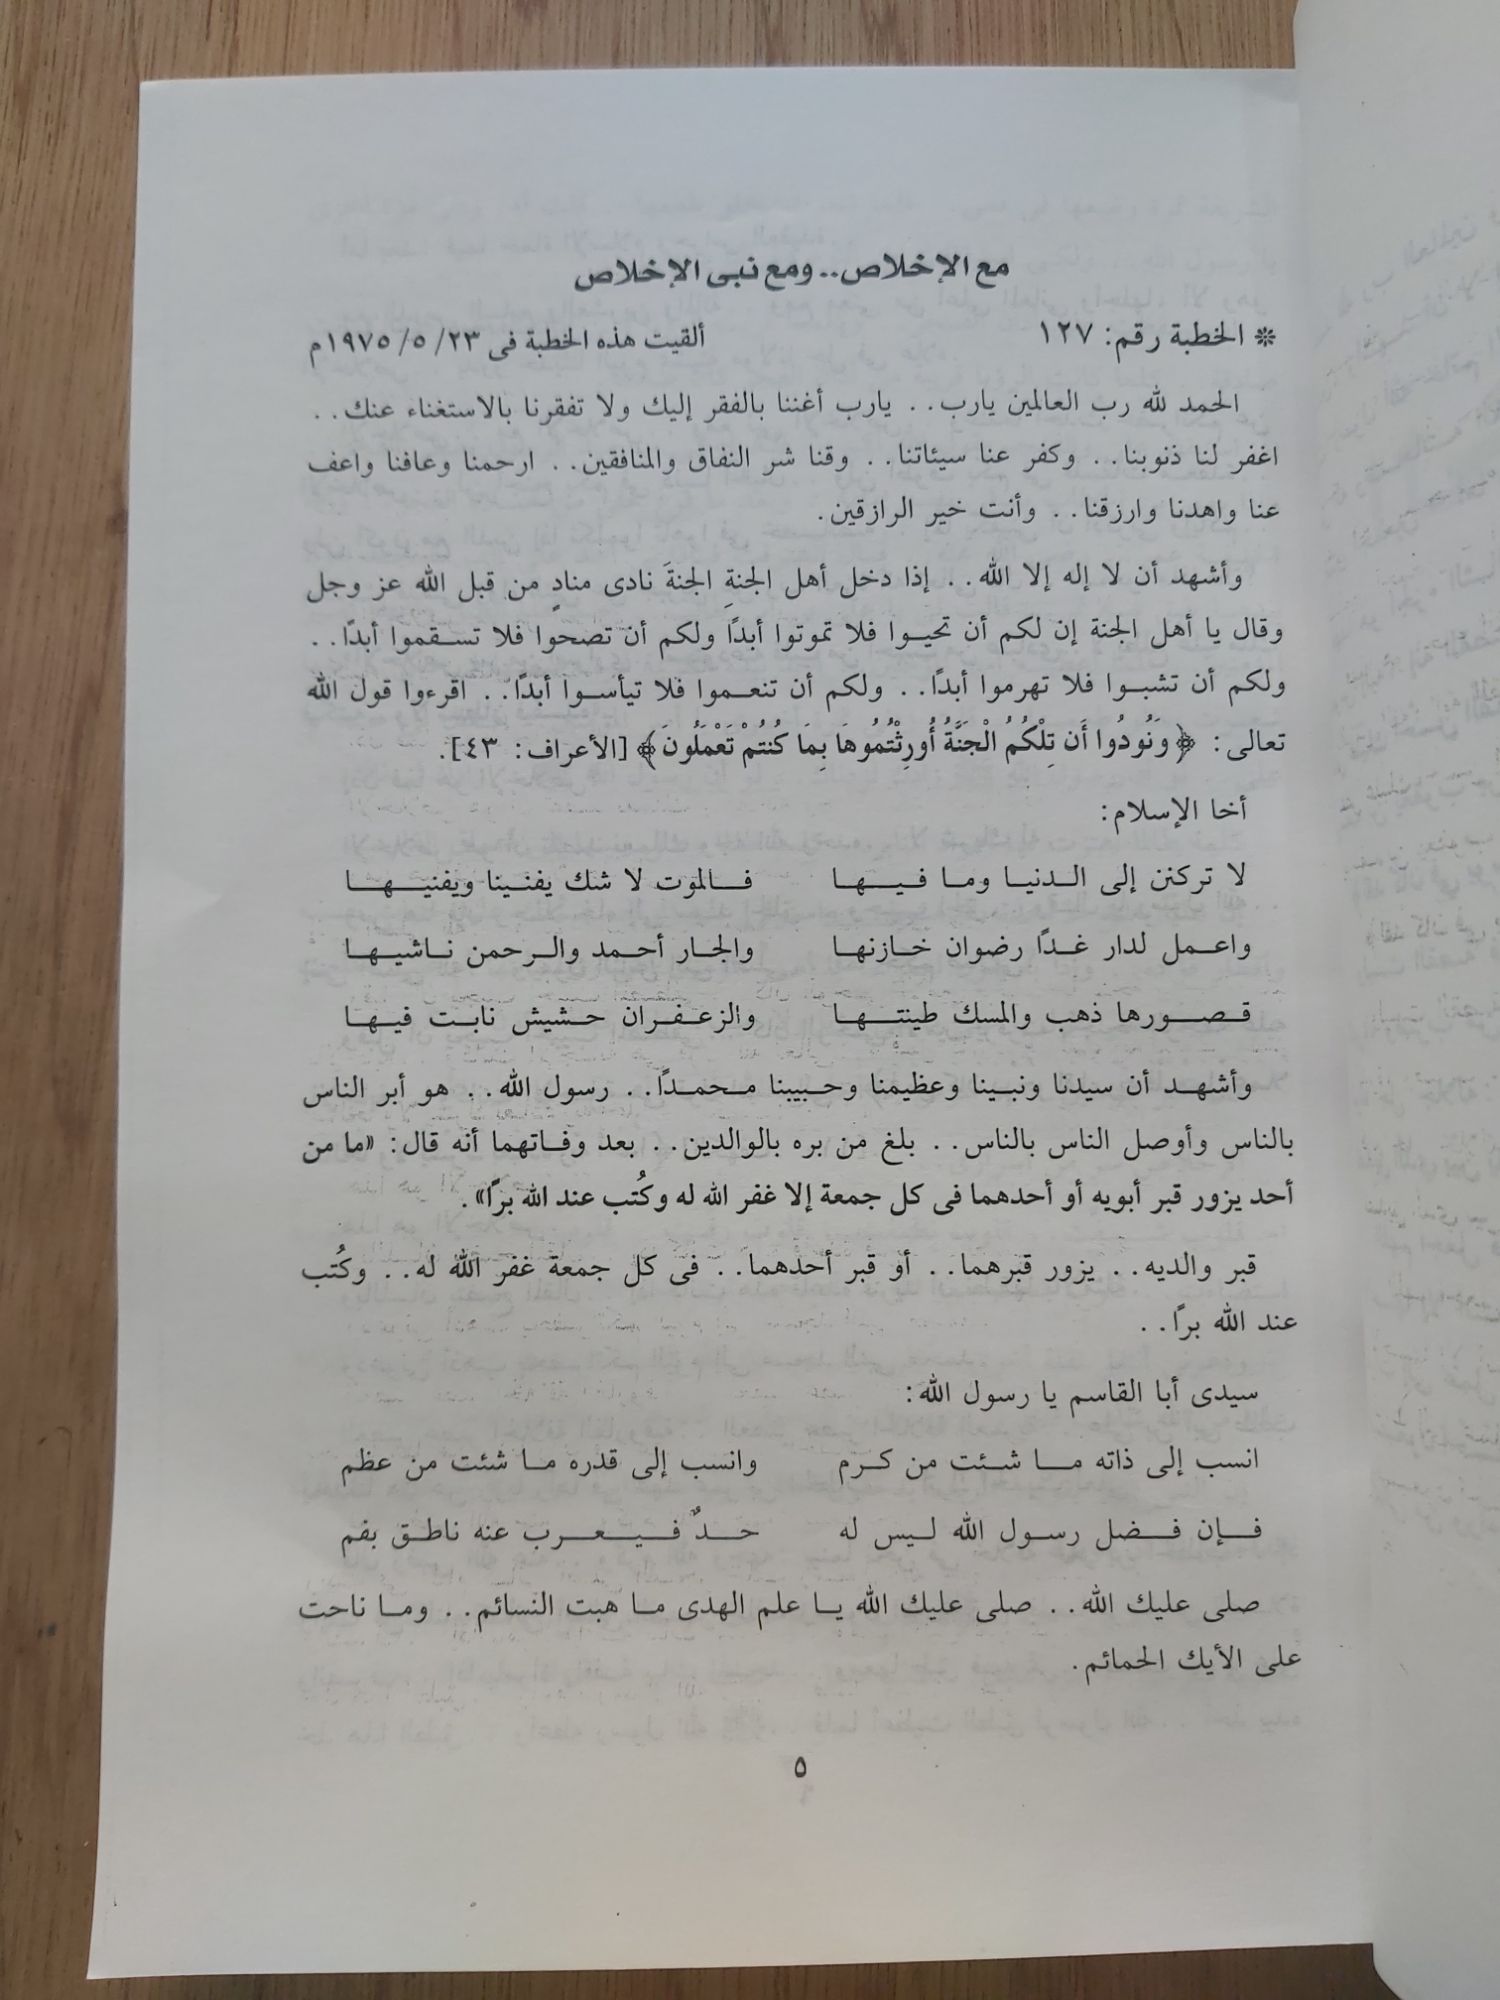 مع الإخلاص.. ومع نبى الإخلاص
❊ الخطبة رقم: ١٢٧ ألقيت هذه الخطبة فى ٢٣/ ٥/ ١٩٧٥م
الحمد لله رب العالمين يارب.. يارب أغننا بالفقر إليك ولا تفقرنا بالاستغناء عنك..
اغفر لنا ذنوبنا.. وكفر عنا سيئاتنا.. وقنا شر النفاق والمنافقين.. ارحمنا وعافنا واعف
عنا واهدنا وارزقنا.. وأنت خير الرازقين.
وأشهد أن لا إله إلا الله.. إذا دخل أهل الجنةِ الجنةَ نادى منادٍ من قبل الله عز وجل
وقال يا أهل الجنة إن لكم أن تحيوا فلا تموتوا أبدًا ولكم أن تصحوا فلا تسقموا أبدًا..
ولكم أن تشبوا فلا تهرموا أبدًا.. ولكم أن تنعموا فلا تيأسوا أبدًا.. اقرءوا قول الله
تعالى: ﴿وَنُودُوا أَن تِلْكُمُ الْجَنَّةُ أُورِثْتُمُوهَا بِمَا كُنتُمْ تَعْمَلُونَ﴾ [الأعراف: ٤٣].
أخا الإسلام:
لا تركنن إلى الدنيا وما فيها فالموت لا شك يفنينا ويفنيها
واعمل لدار غدًا رضوان خازنها والجار أحمد والرحمن ناشيها
قصورها ذهب والمسك طينتها والزعفران حشيش نابت فيها
وأشهد أن سيدنا ونبينا وعظيمنا وحبيبنا محمدًا.. رسول الله.. هو أبر الناس
بالناس وأوصل الناس بالناس.. بلغ من بره بالوالدين.. بعد وفاتهما أنه قال: «ما من
أحد يزور قبر أبويه أو أحدهما فى كل جمعة إلا غفر الله له وكُتب عند الله برًا».
قبر والديه.. يزور قبرهما.. أو قبر أحدهما.. فى كل جمعة غفر الله له.. وكُتب
عند الله برًا..
سيدى أبا القاسم يا رسول الله:
انسب إلى ذاته ما شئت من كرم وانسب إلى قدره ما شئت من عظم
فإن فضل رسول الله ليس له حدٌ فيعرب عنه ناطق بفم
صلى عليك الله.. صلى عليك الله يا علم الهدى ما هبت النسائم.. وما ناحت
على الأيك الحمائم.
٥